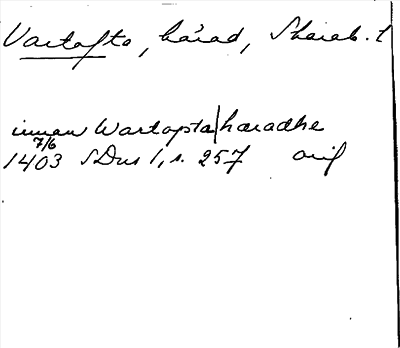 Vartofta, härad, Skarab. l
innan Wartopta|haradhe
7/6
1403 SDns 1, s. 257 orig